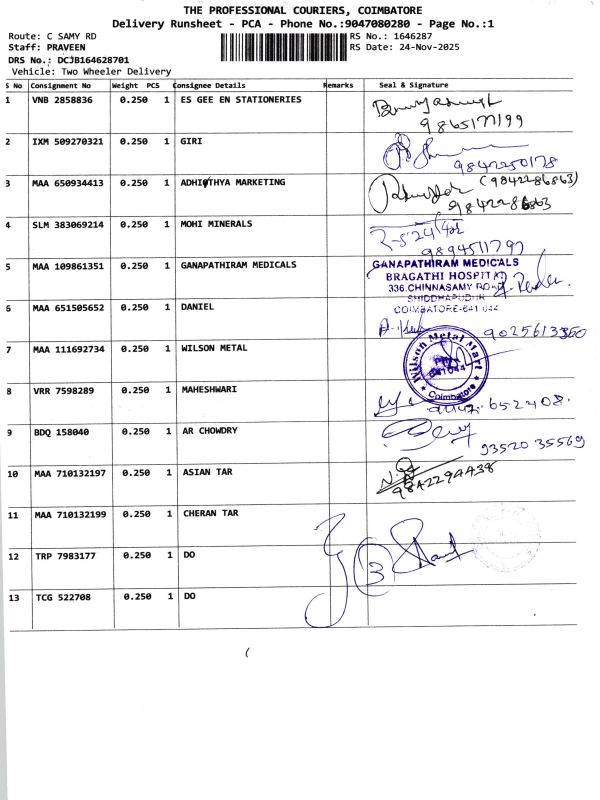 THE PROFESSIONAL COURIERS, COIMBATORE
Delivery Runsheet - PCA - Phone No.:9047080280 - Page No.:1
Route: C SAMY RD RS No.: 1646287
Staff: PRAVEEN RS Date: 24-Nov-2025
DRS No.: DCJB164628701
Vehicle: Two Wheeler Delivery
S No Consignment No Weight PCS Consignee Details Remarks Seal & Signature
1 VNB 2858836 0.250 1 ES GEE EN STATIONERIES
9865177199
2 IXM 509270321 0.250 1 GIRI
9842250178
3 MAA 650934413 0.250 1 ADHITHYA MARKETING (9842286863)
9842286863
4 SLM 383069214 0.250 1 MOHI MINERALS
9894511797
5 MAA 109861351 0.250 1 GANAPATHIRAM MEDICALS GANAPATHIRAM MEDICALS
BRAGATHI HOSPITAL
336.CHINNASAMY ROAD
SIDDHAPUDUR
COIMBATORE-641 044
6 MAA 651505652 0.250 1 DANIEL
9025613360
7 MAA 111692734 0.250 1 WILSON METAL Wilson Metal Mart
641044
Coimbatore
8 VRR 7598289 0.250 1 MAHESHWARI
652408
9 BDQ 158040 0.250 1 AR CHOWDRY
93520 35569
10 MAA 710132197 0.250 1 ASIAN TAR
9842294438
11 MAA 710132199 0.250 1 CHERAN TAR
12 TRP 7983177 0.250 1 DO
3
13 TCG 522708 0.250 1 DO